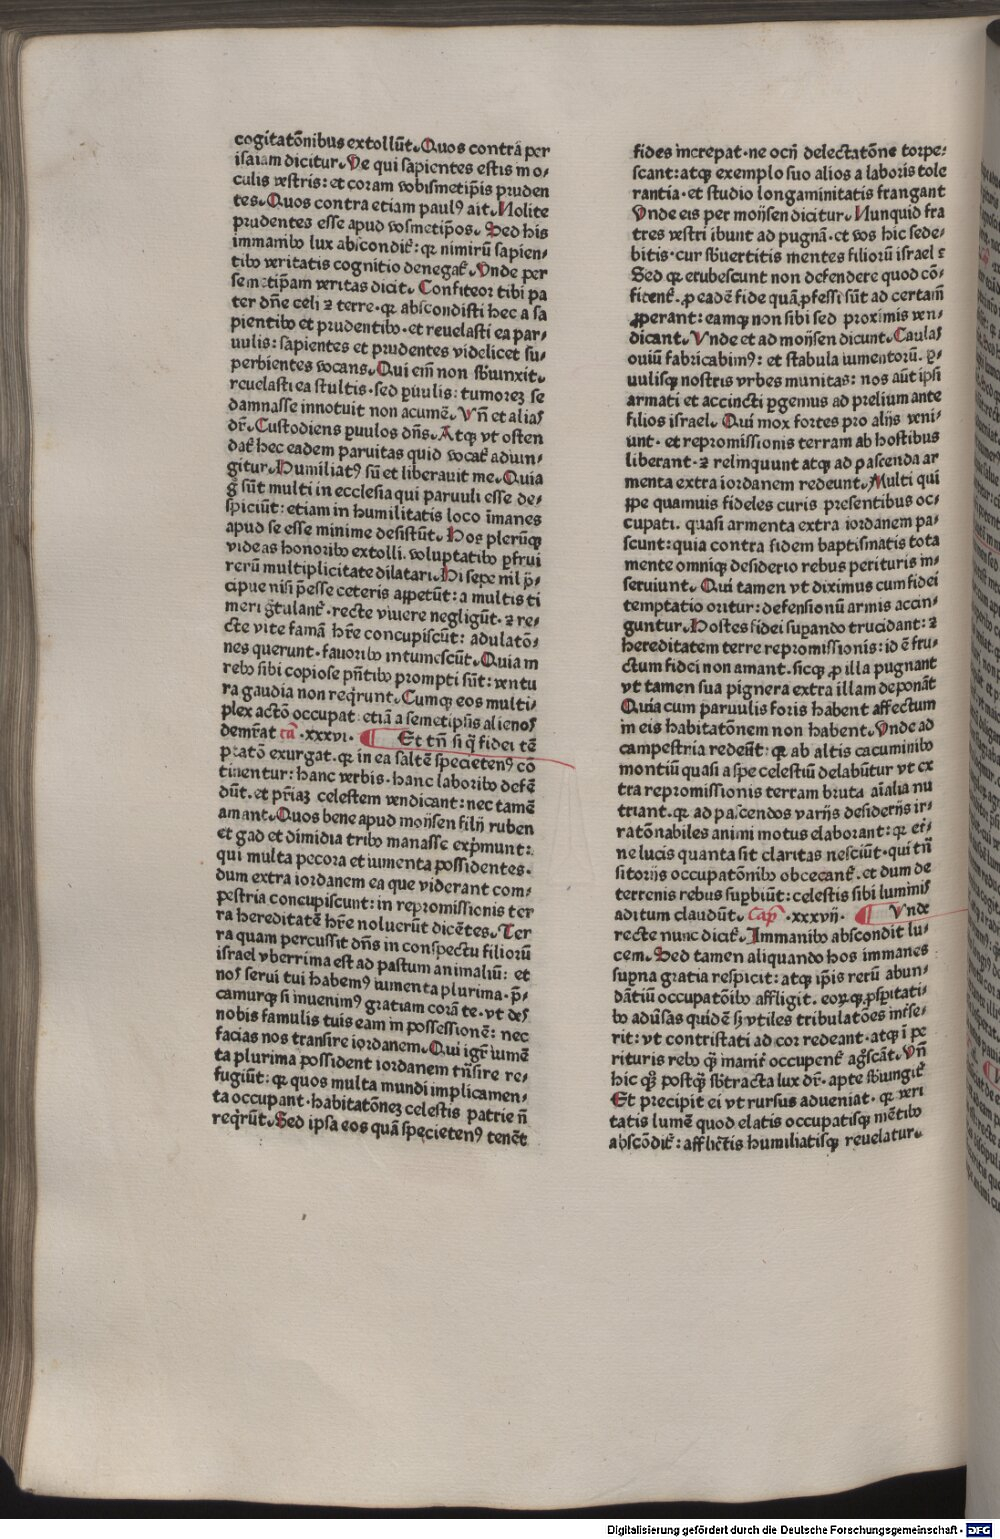 cogitatõnibus extollũt. Quos contra per
isaiam dicitur. Ve qui sapientes estis in o-
culis vestris: et coram vobismetip̃is pruden
tes. Quos contra etiam paulꝰ ait. Nolite
prudentes esse apud vosmetip̃os. Sed his
immanibꝰ lux abscondit̃: qꝛ nimirũ sapien-
tibꝰ veritatis cognitio denegat̃. Vnde per
semetip̃am veritas dicit. Confiteor tibi pa
ter dñe celi ⁊ terre. qꝛ abscondisti hec a sa
pientibꝰ et prudentibꝰ. et reuelasti ea par-
uulis: sapientes et prudentes videlicet su-
perbientes vocans. Qui eĩm non sbiunxit.
reuelasti ea stultis. sed p̱uulis: tumorez se
damnasse innotuit non acumẽ. Vñ et alias
dr̃. Custodiens p̱uulos dñs. Atqꝫ vt osten
dat̃ hec eadem paruitas quid vocat̃ adiun-
gitur. Humiliatꝰ sũ et liberauit me. Quia
g̃ sũt multi in ecclesia qui paruuli esse de-
spiciũt: etiam in humilitatis loco ĩmanes
apud se esse minime desistũt. Hos plerũqꝫ
videas honoribꝰ extolli. voluptatibꝰ p̱frui
rerũ multiplicitate dilatari. Hi sepe nil p̃-
cipue nisi p̃esse ceteris appetũt: a multis ti
meri g̃tulant̃. recte viuere negligũt. ⁊ re-
cte vite famã hr̃e concupiscũt: adulatõ-
nes querunt. fauoribꝰ intumescũt. Quia in
rebꝰ sibi copiose p̃ñtibꝰ prompti sũt: ventu
ra gaudia non reqr̃unt. Cumqꝫ eos multi-
plex actõ occupat. etiã a semetip̃is alienos
demr̃at cã .xxxvi. Et tñ si q̃ fidei tẽ
ptatõ exurgat. qꝛ in ea saltẽ specietenꝰ cõ
tinentur: hanc verbis. hanc laboribꝰ defẽ
dũt. et pr̃iaz celestem vendicant: nec tamẽ
amant. Quos bene apud moÿsen filij ruben
et gad et dimidia tribꝰ manasse exp̃munt:
qui multa pecora et iumenta possidentes.
dum extra iordanem ea que viderant com-
pestria concupiscunt: in repromissionis ter
ra hereditatẽ hr̃e noluerũt dicẽtes. Ter
ra quam percussit dñs in conspectu filiorũ
israel vberrima est ad pastum animaliũ: et
nos serui tui habemꝰ iumenta plurima. p̃-
camurqꝫ si inuenimꝰ gratiam corã te. vt des
nobis famulis tuis eam in possessionẽ: nec
facias nos transire iordanem. Qui igr̃ iumẽ
ta plurima possident iordanem trñsire re-
fugiũt: qꝛ quos multa mundi implicamen-
ta occupant. habitatõnez celestis patrie ñ
reqr̃ũt. Sed ipsa eos quã specietenꝰ tenẽt
fides increpat. ne ocij delectatõne torpe-
scant: atqꝫ exemplo suo alios a laboris tole
rantia. et studio longaminitatis frangant
Vnde eis per moÿsen dicitur. Nunquid fra
tres vestri ibunt ad pugnã. et vos hic sede-
bitis. cur sbuertitis mentes filiorũ israel :
Sed qꝛ erubescunt non defendere quod cõ-
fitent̃. ꝓ eadẽ fide quã ꝓfessi sũt ad certam̃
ꝓperant: eamqꝫ non sibi sed proximis ven-
dicant. Vnde et ad moÿsen dicunt. Caulas
ouiũ fabricabimꝰ: et stabula iumentorũ. p̱-
uulisqꝫ nostris vrbes munitas: nos aũt ipsi
armati et accincti p̱gemus ad prelium ante
filios israel. Qui mox fortes pro alijs veni-
unt. et repromissionis terram ab hostibus
liberant. ⁊ relinquunt atqꝫ ad pascenda ar
menta extra iordanem redeunt. Multi qui
ꝓpe quamuis fideles curis presentibus oc-
cupati. quasi armenta extra iordanem pa-
scunt: quia contra fidem baptismatis tota
mente omniqꝫ desiderio rebus perituris in-
seruiunt. Qui tamen vt diximus cum fidei
temptatio oritur: defensionũ armis accin-
guntur. Hostes fidei supando trucidant: ⁊
hereditatem terre repromissionis: id ẽ fru-
ctum fidei non amant. sicqꝫ ꝓ illa pugnant
vt tamen sua pignera extra illam deponãt
Quia cum paruulis foris habent affectum
in eis habitatõnem non habent. Vnde ad
campestria redeũt: qꝛ ab altis cacuminibꝰ
montiũ quasi a spe celestiũ delabũtur vt ex
tra repromissionis terram bruta aĩalia nu
triant. qꝛ ad pascendos varijs desiderijs ir-
ratõnabiles animi motus elaborant: qꝛ et̃-
ne lucis quanta sit claritas nesciũt. qui trñ
sitorijs occupatõnibꝰ obcecant̃. et dum de
terrenis rebus sup̱biũt: celestis sibi luminis
aditum claudũt. Cap̃ .xxxvij. Vnde
recte nunc dicit̃. Immanibꝰ abscondit lu-
cem. Sed tamen aliquando hos immanes
sup̱na gratia respicit: atqꝫ ip̃is rerũ abun-
dãtiũ occupatõibꝰ affligit. eorqꝫ ꝓsp̱itati-
bꝰ adũsas quidẽ sꝫ vtiles tribulatões inse-
rit: vt contristati ad cor redeant. atqꝫ ĩ pe
rituris rebꝰ q̃ inanit̃ occupent̃ ag̃scãt. Vñ
hic q̃ postq̃ sbtracta lux dr̃. apte sbiungit̃
Et precipit ei vt rursus adueniat. qꝛ veri
tatis lumẽ quod elatis occupatisqꝫ mẽtibꝰ
abscõdit̃: afflictis humiliatisqꝫ reuelatur.
Digitalisierung gefördert durch die Deutsche Forschungsgemeinschaft - DFG